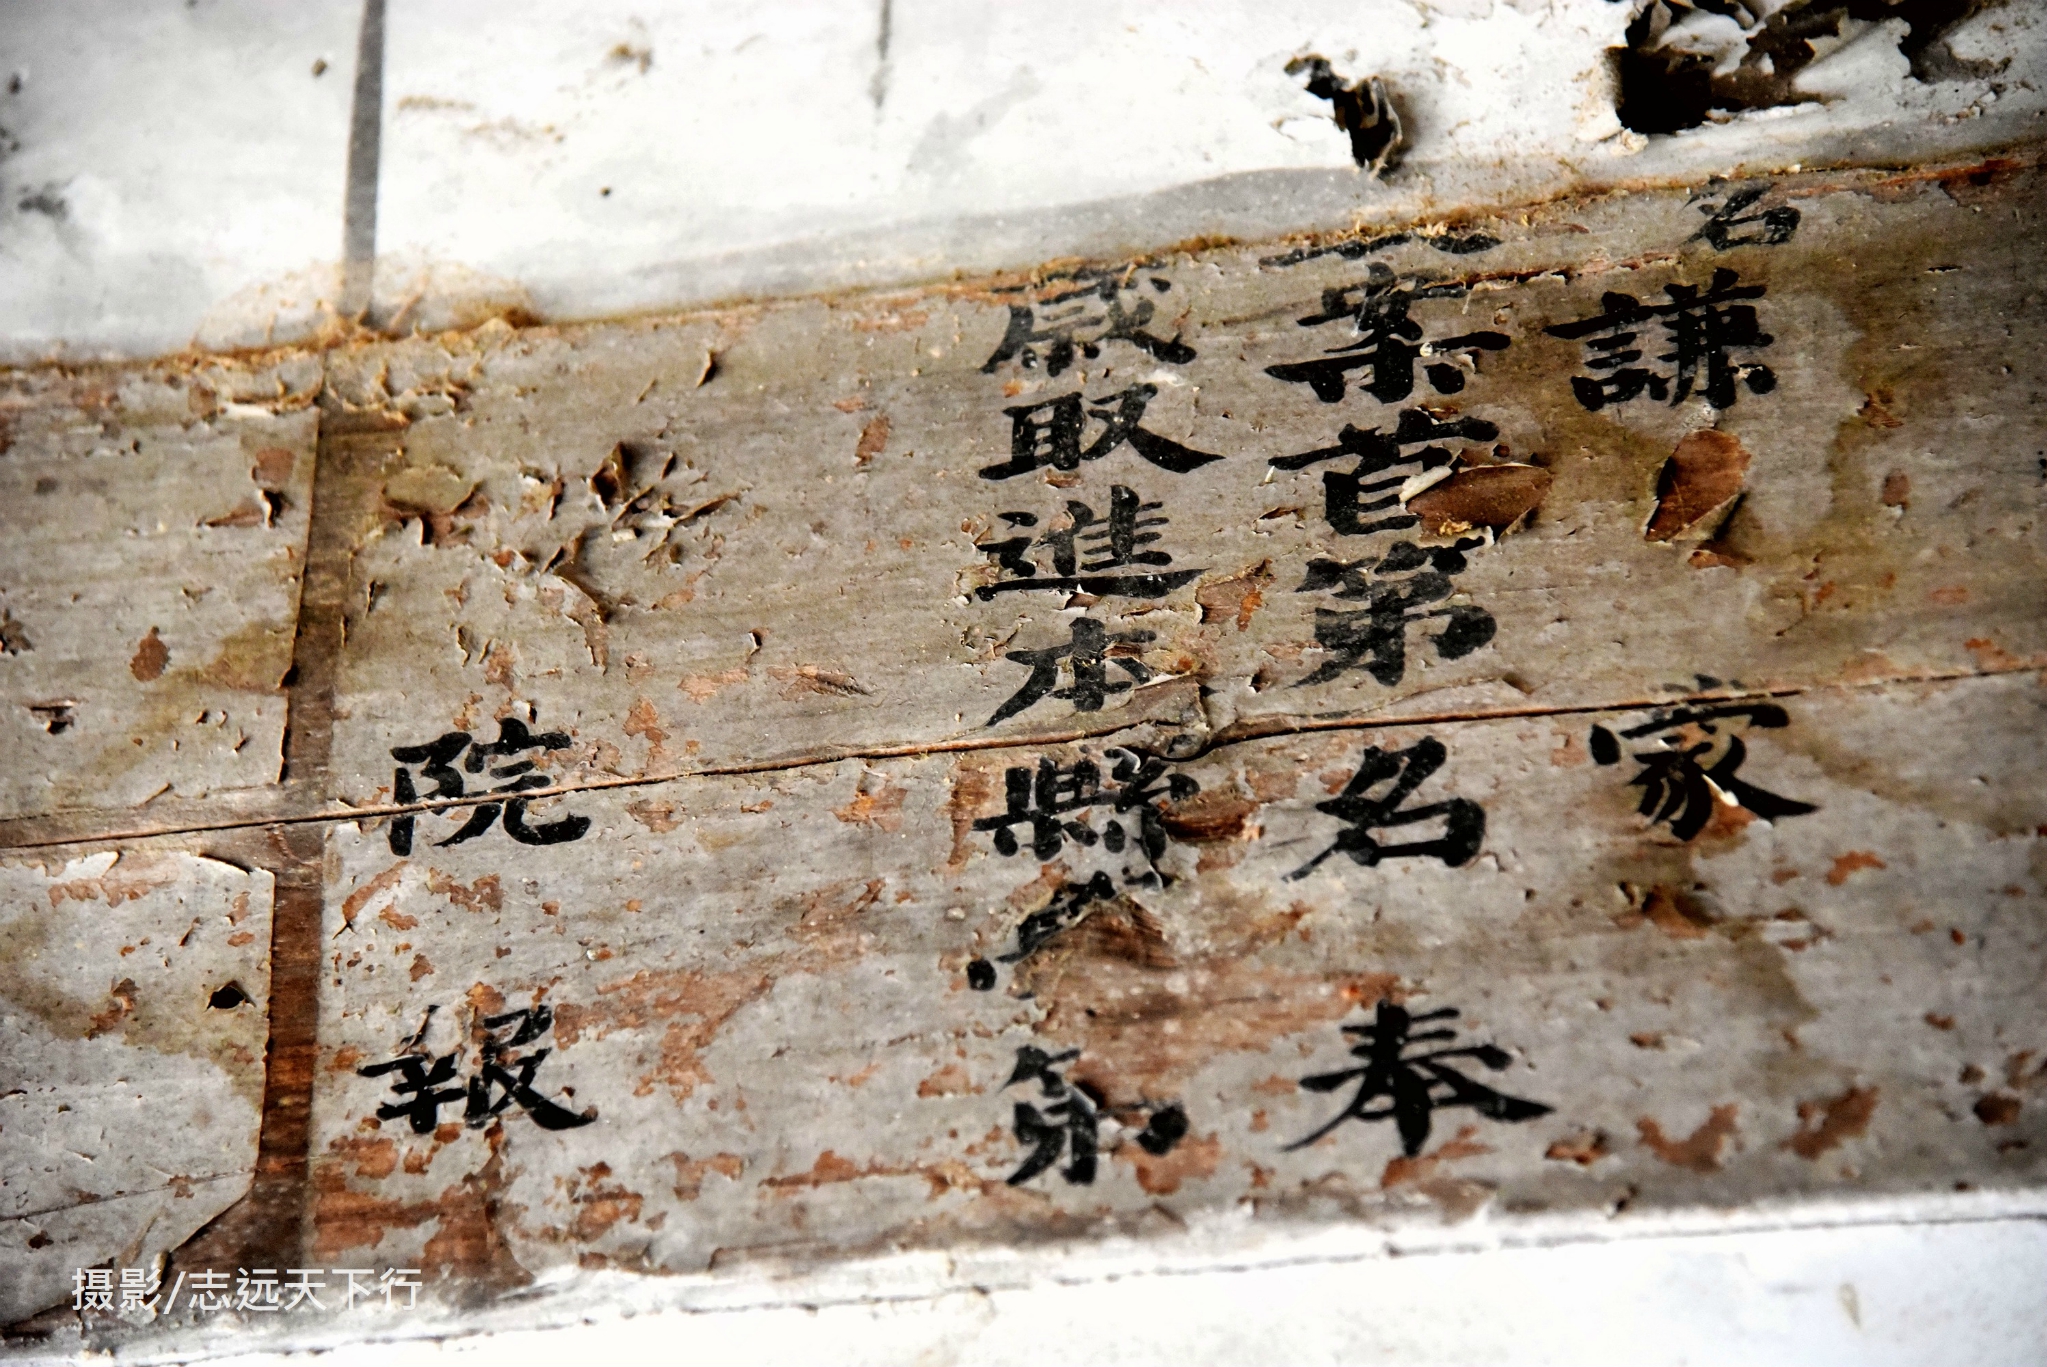 名謙 家
案首第 名 奉
歲取進本縣 第
院 報
摄影/志远天下行